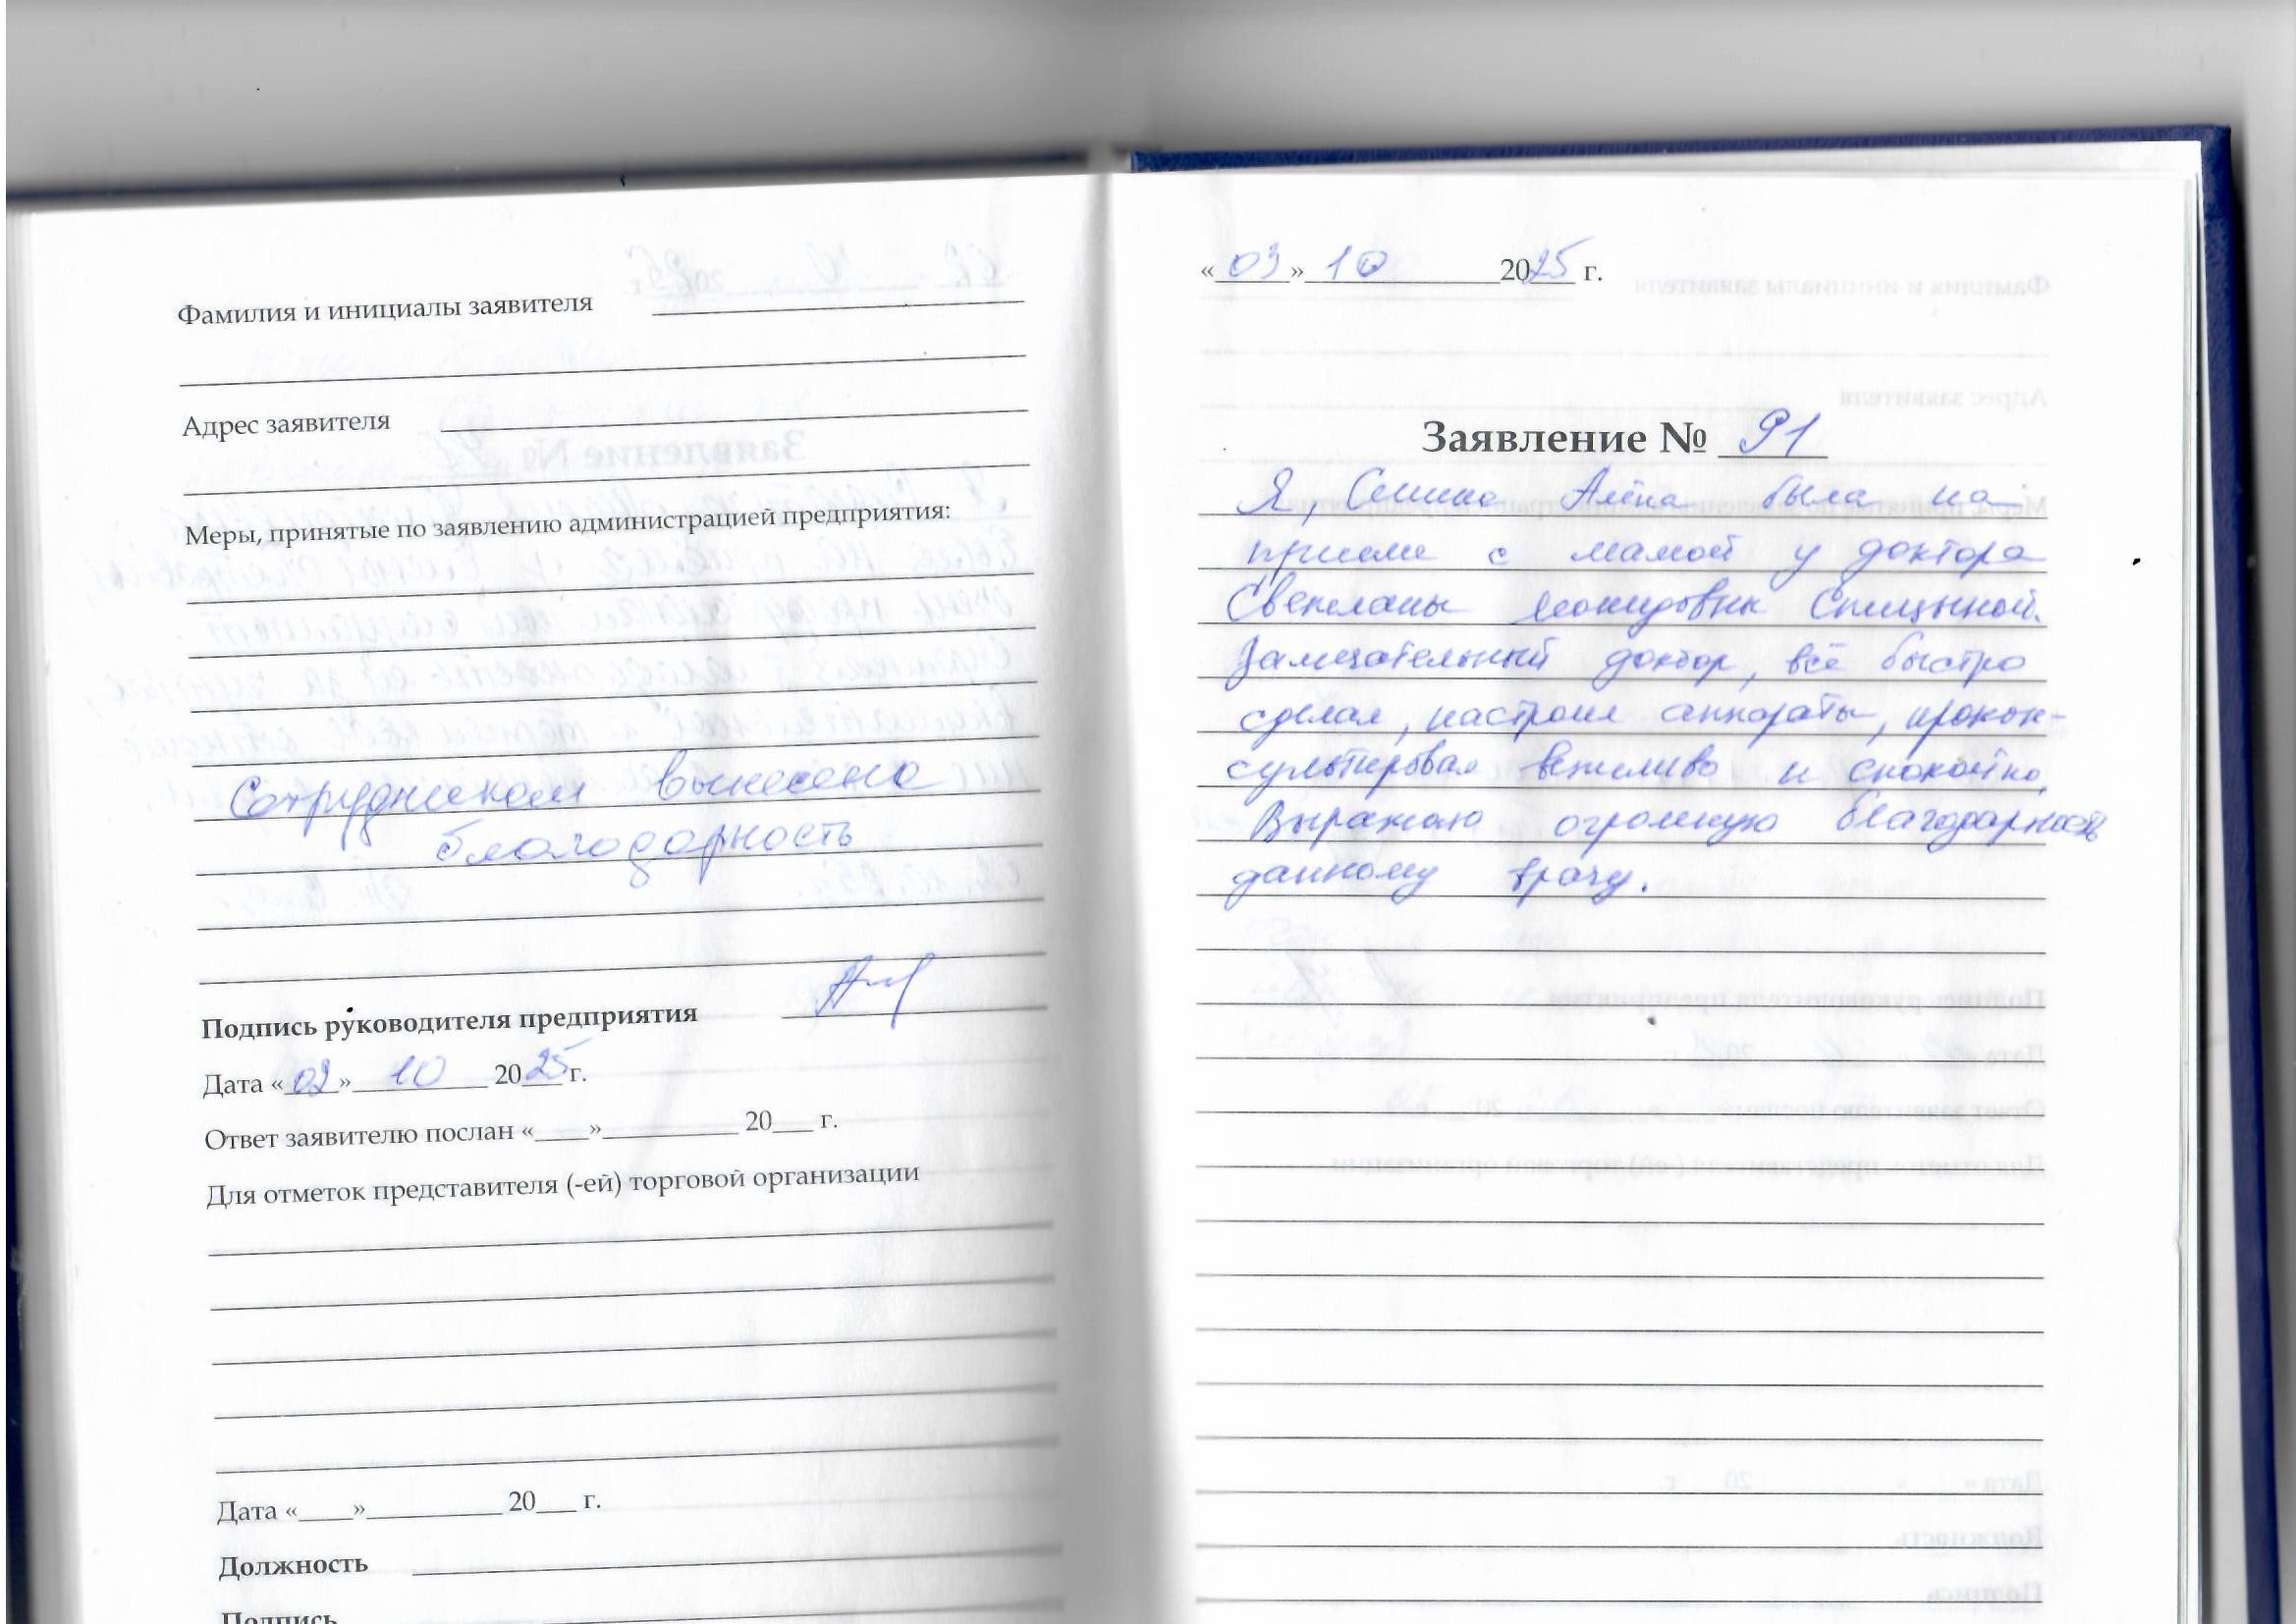 Фамилия и инициалы заявителя
Адрес заявителя
Меры, принятые по заявлению администрацией предприятия:
Сотрудникам вынесена
благодарность
Подпись руководителя предприятия
Дата «02» 10 2025 г.
Ответ заявителю послан «____»__________ 20___ г.
Для отметок представителя (-ей) торговой организации
Дата «____»__________ 20___ г.
Должность
Подпись
«03» 10 2025 г.
Заявление № 91
Я, Алёна была на
приеме с мамой у доктора
Светланы Леонидовны Спицыной.
Замечательный доктор, всё быстро
сделал, настроил аппараты, прокон-
сультировал вежливо и спокойно.
Выражаю огромную благодарность
данному врачу.